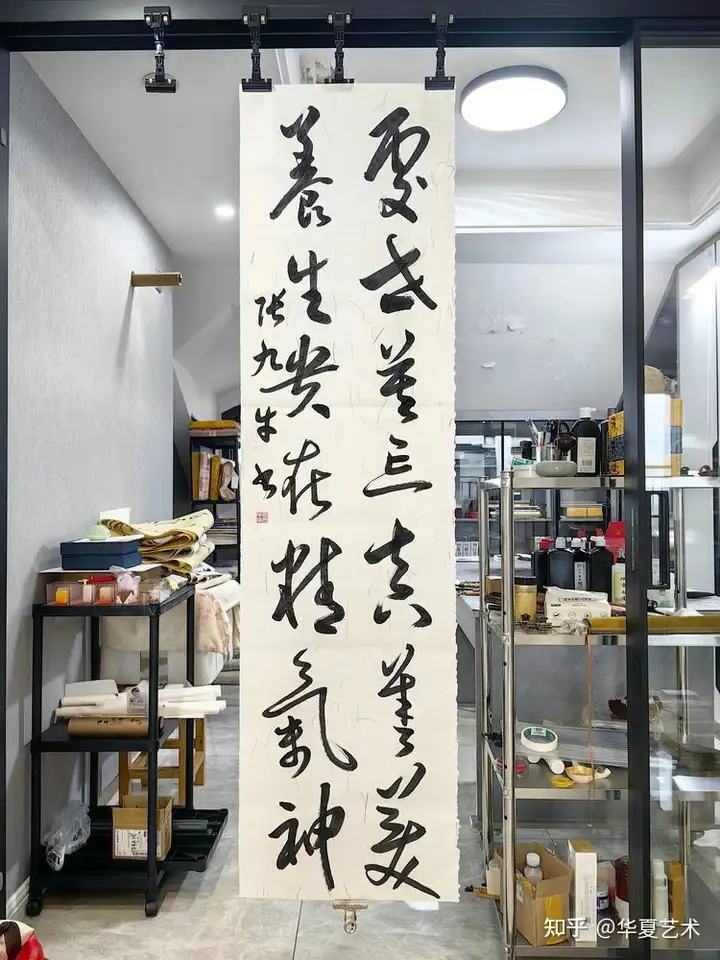 處世莫忘真善美
養生貴在精氣神
张九书
知乎 @华夏艺术